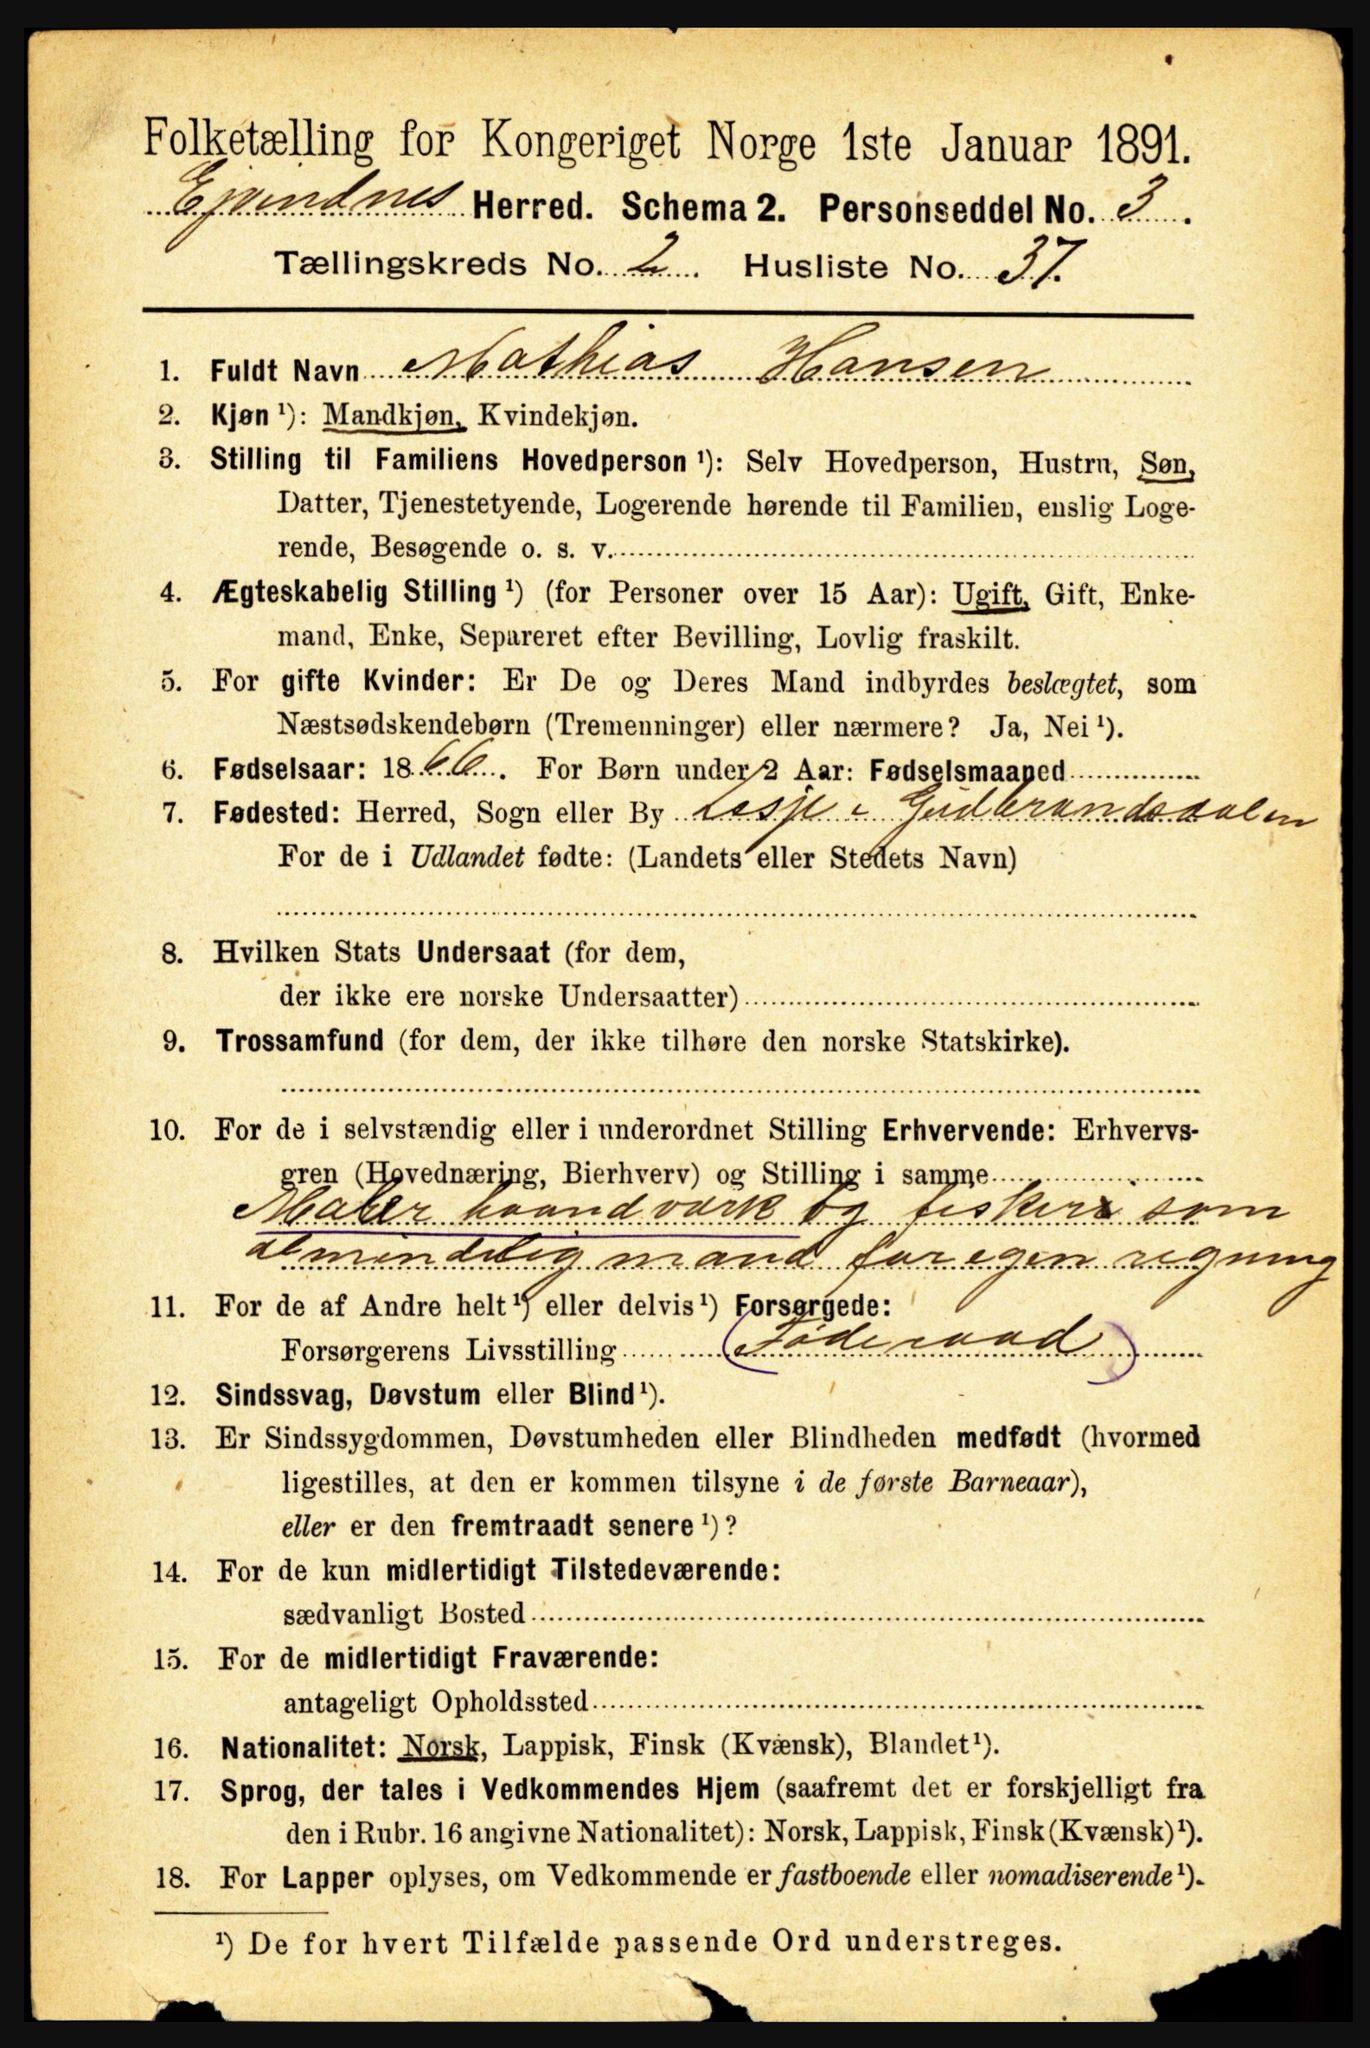 Folketælling for Kongeriget Norge 1ste Januar 1891.
Ejvindnes Herred. Schema 2. Personseddel No. 3.
Tællingskreds No. 2. Husliste No. 37.
1. Fuldt Navn Mathias Hansen
2. Kjøn ¹): Mandkjøn, Kvindekjøn.
3. Stilling til Familiens Hovedperson ¹): Selv Hovedperson, Hustru, Søn,
Datter, Tjenestetyende, Logerende hørende til Familien, enslig Loge-
rende, Besøgende o. s. v.
4. Ægteskabelig Stilling ¹) (for Personer over 15 Aar): Ugift, Gift, Enke-
mand, Enke, Separeret efter Bevilling, Lovlig fraskilt.
5. For gifte Kvinder: Er De og Deres Mand indbyrdes beslægtet, som
Næstsødskendebørn (Tremenninger) eller nærmere? Ja, Nei ¹).
6. Fødselsaar: 1866. For Børn under 2 Aar: Fødselsmaaned
7. Fødested: Herred, Sogn eller By Lesje i Gudbrandsdalen
For de i Udlandet fødte: (Landets eller Stedets Navn)
8. Hvilken Stats Undersaat (for dem,
der ikke ere norske Undersaatter)
9. Trossamfund (for dem, der ikke tilhøre den norske Statskirke).
10. For de i selvstændig eller i underordnet Stilling Erhvervende: Erhvervs-
gren (Hovednæring, Bierhverv) og Stilling i samme
Maler haandværk og fisker som
almindelig mand for egen regning
11. For de af Andre helt ¹) eller delvis ¹) Forsørgede:
Forsørgerens Livsstilling (Føderaad)
12. Sindssvag, Døvstum eller Blind ¹).
13. Er Sindssygdommen, Døvstumheden eller Blindheden medfødt (hvormed
ligestilles, at den er kommen tilsyne i de første Barneaar),
eller er den fremtraadt senere ¹)?
14. For de kun midlertidigt Tilstedeværende:
sædvanligt Bosted
15. For de midlertidigt Fraværende:
antageligt Opholdssted
16. Nationalitet: Norsk, Lappisk, Finsk (Kvænsk), Blandet ¹).
17. Sprog, der tales i Vedkommendes Hjem (saafremt det er forskjelligt fra
den i Rubr. 16 angivne Nationalitet): Norsk, Lappisk, Finsk (Kvænsk) ¹).
18. For Lapper oplyses, om Vedkommende er fastboende eller nomadiserende ¹).
¹) De for hvert Tilfælde passende Ord understreges.